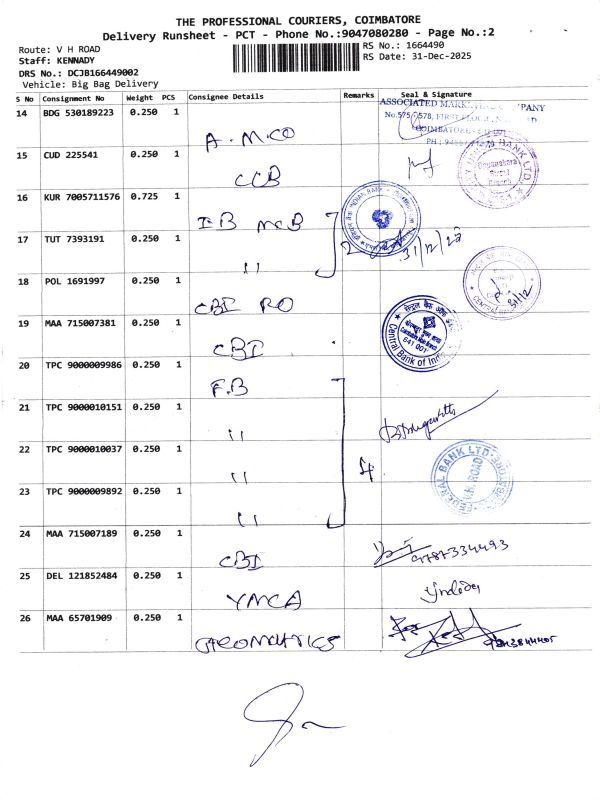 THE PROFESSIONAL COURIERS, COIMBATORE
Delivery Runsheet - PCT - Phone No.:9047080280 - Page No.:2
Route: V H ROAD
RS No.: 1664490
Staff: KENNADY
RS Date: 31-Dec-2025
DRS No.: DCJB166449002
Vehicle: Big Bag Delivery
S No Consignment No. Weight PCS Consignee Details Remarks Seal & Signature
14 BDG 530189223 0.250 1 A.M.CO
ASSOCIATED
15 CUD 225541 0.250 1 CCB
BANK LTD.
16 KUR 7005711576 0.725 1 IB MCB
INDIAN BANK
17 TUT 7393191 0.250 1 "
31/12/25
18 POL 1691997 0.250 1 CBI RO
31/12
19 MAA 715007381 0.250 1 CBI
Central Bank of
641 001
20 TPC 9000009986 0.250 1 F.B
21 TPC 9000010151 0.250 1 "
22 TPC 9000010037 0.250 1 "
FEDERAL BANK LTD.
V.H. ROAD
23 TPC 9000009892 0.250 1 "
24 MAA 715007189 0.250 1 CBI
9787334493
25 DEL 121852484 0.250 1 YMCA
26 MAA 65701909 0.250 1 GEOMATRICS